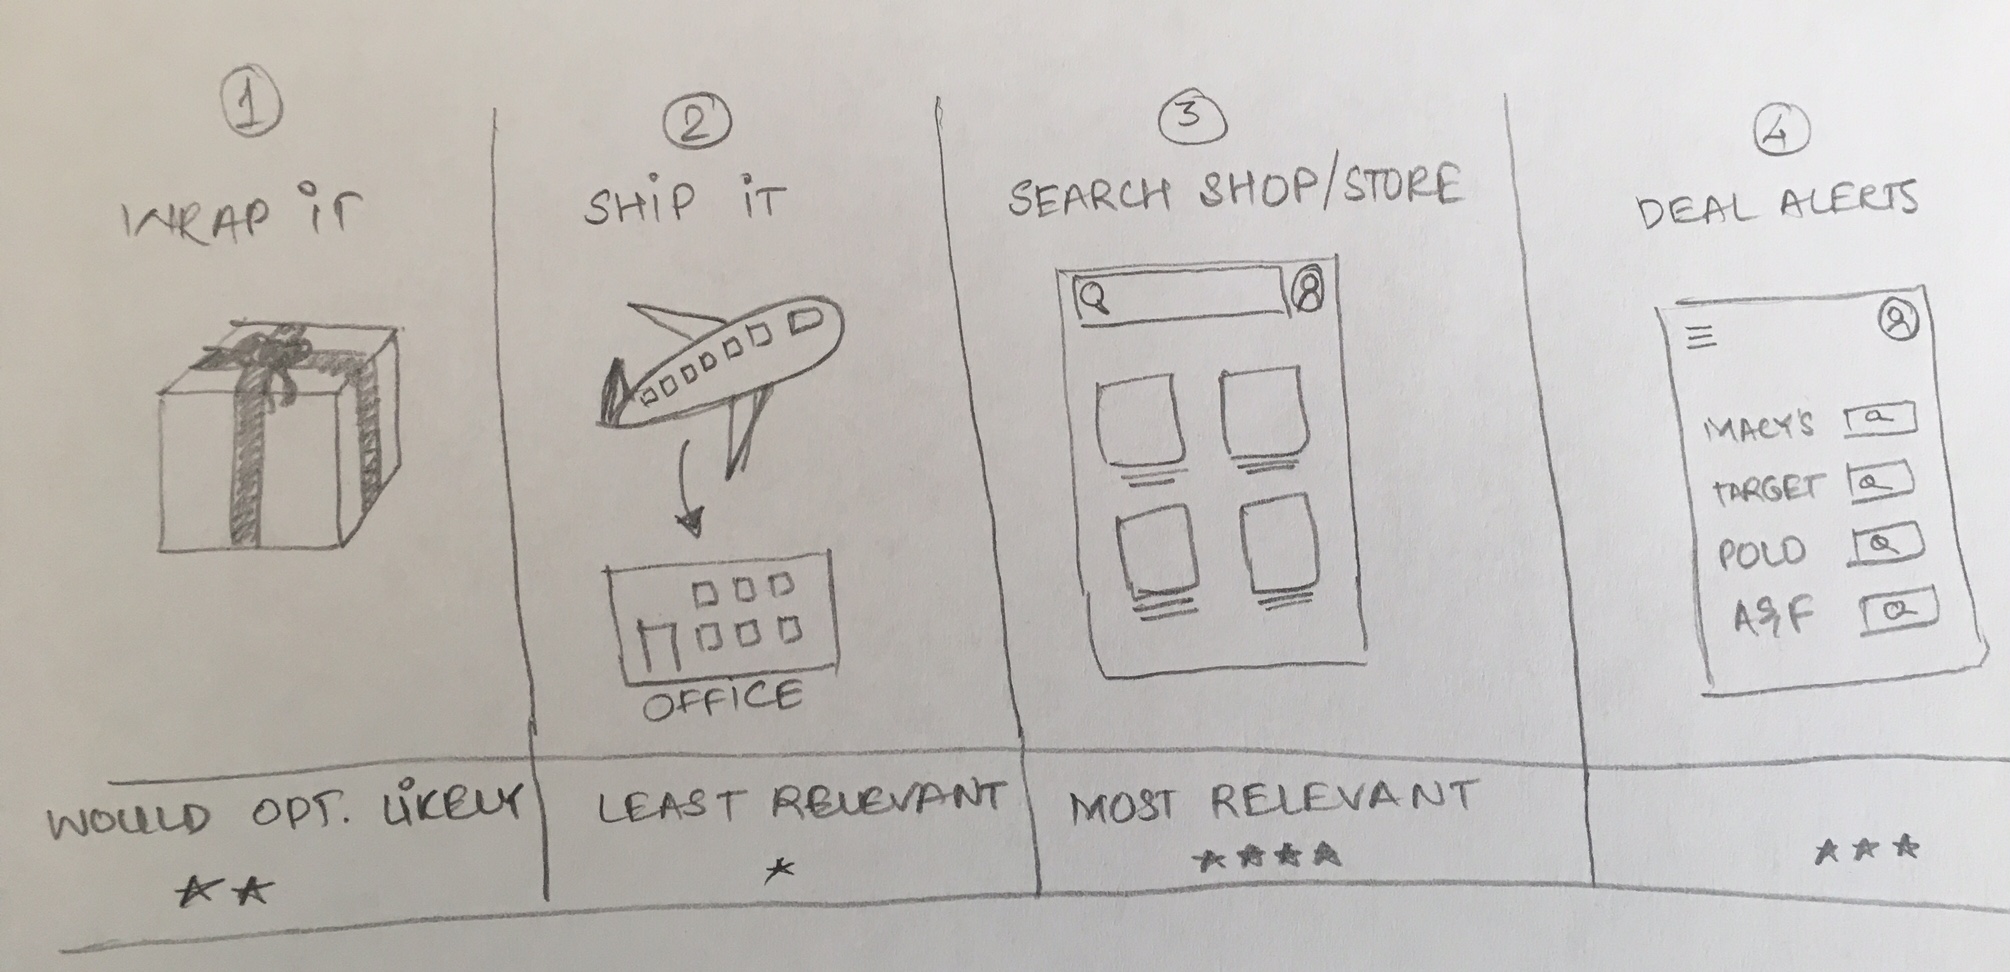 1
WRAP iT
2
SHiP iT
OFFiCE
3
SEARCH SHOP/STORE
4
DEAL ALERTS
MACY'S
TARGET
POLO
A&F
WOULD OPT. LiKELY
LEAST RELEVANT
MOST RELEVANT